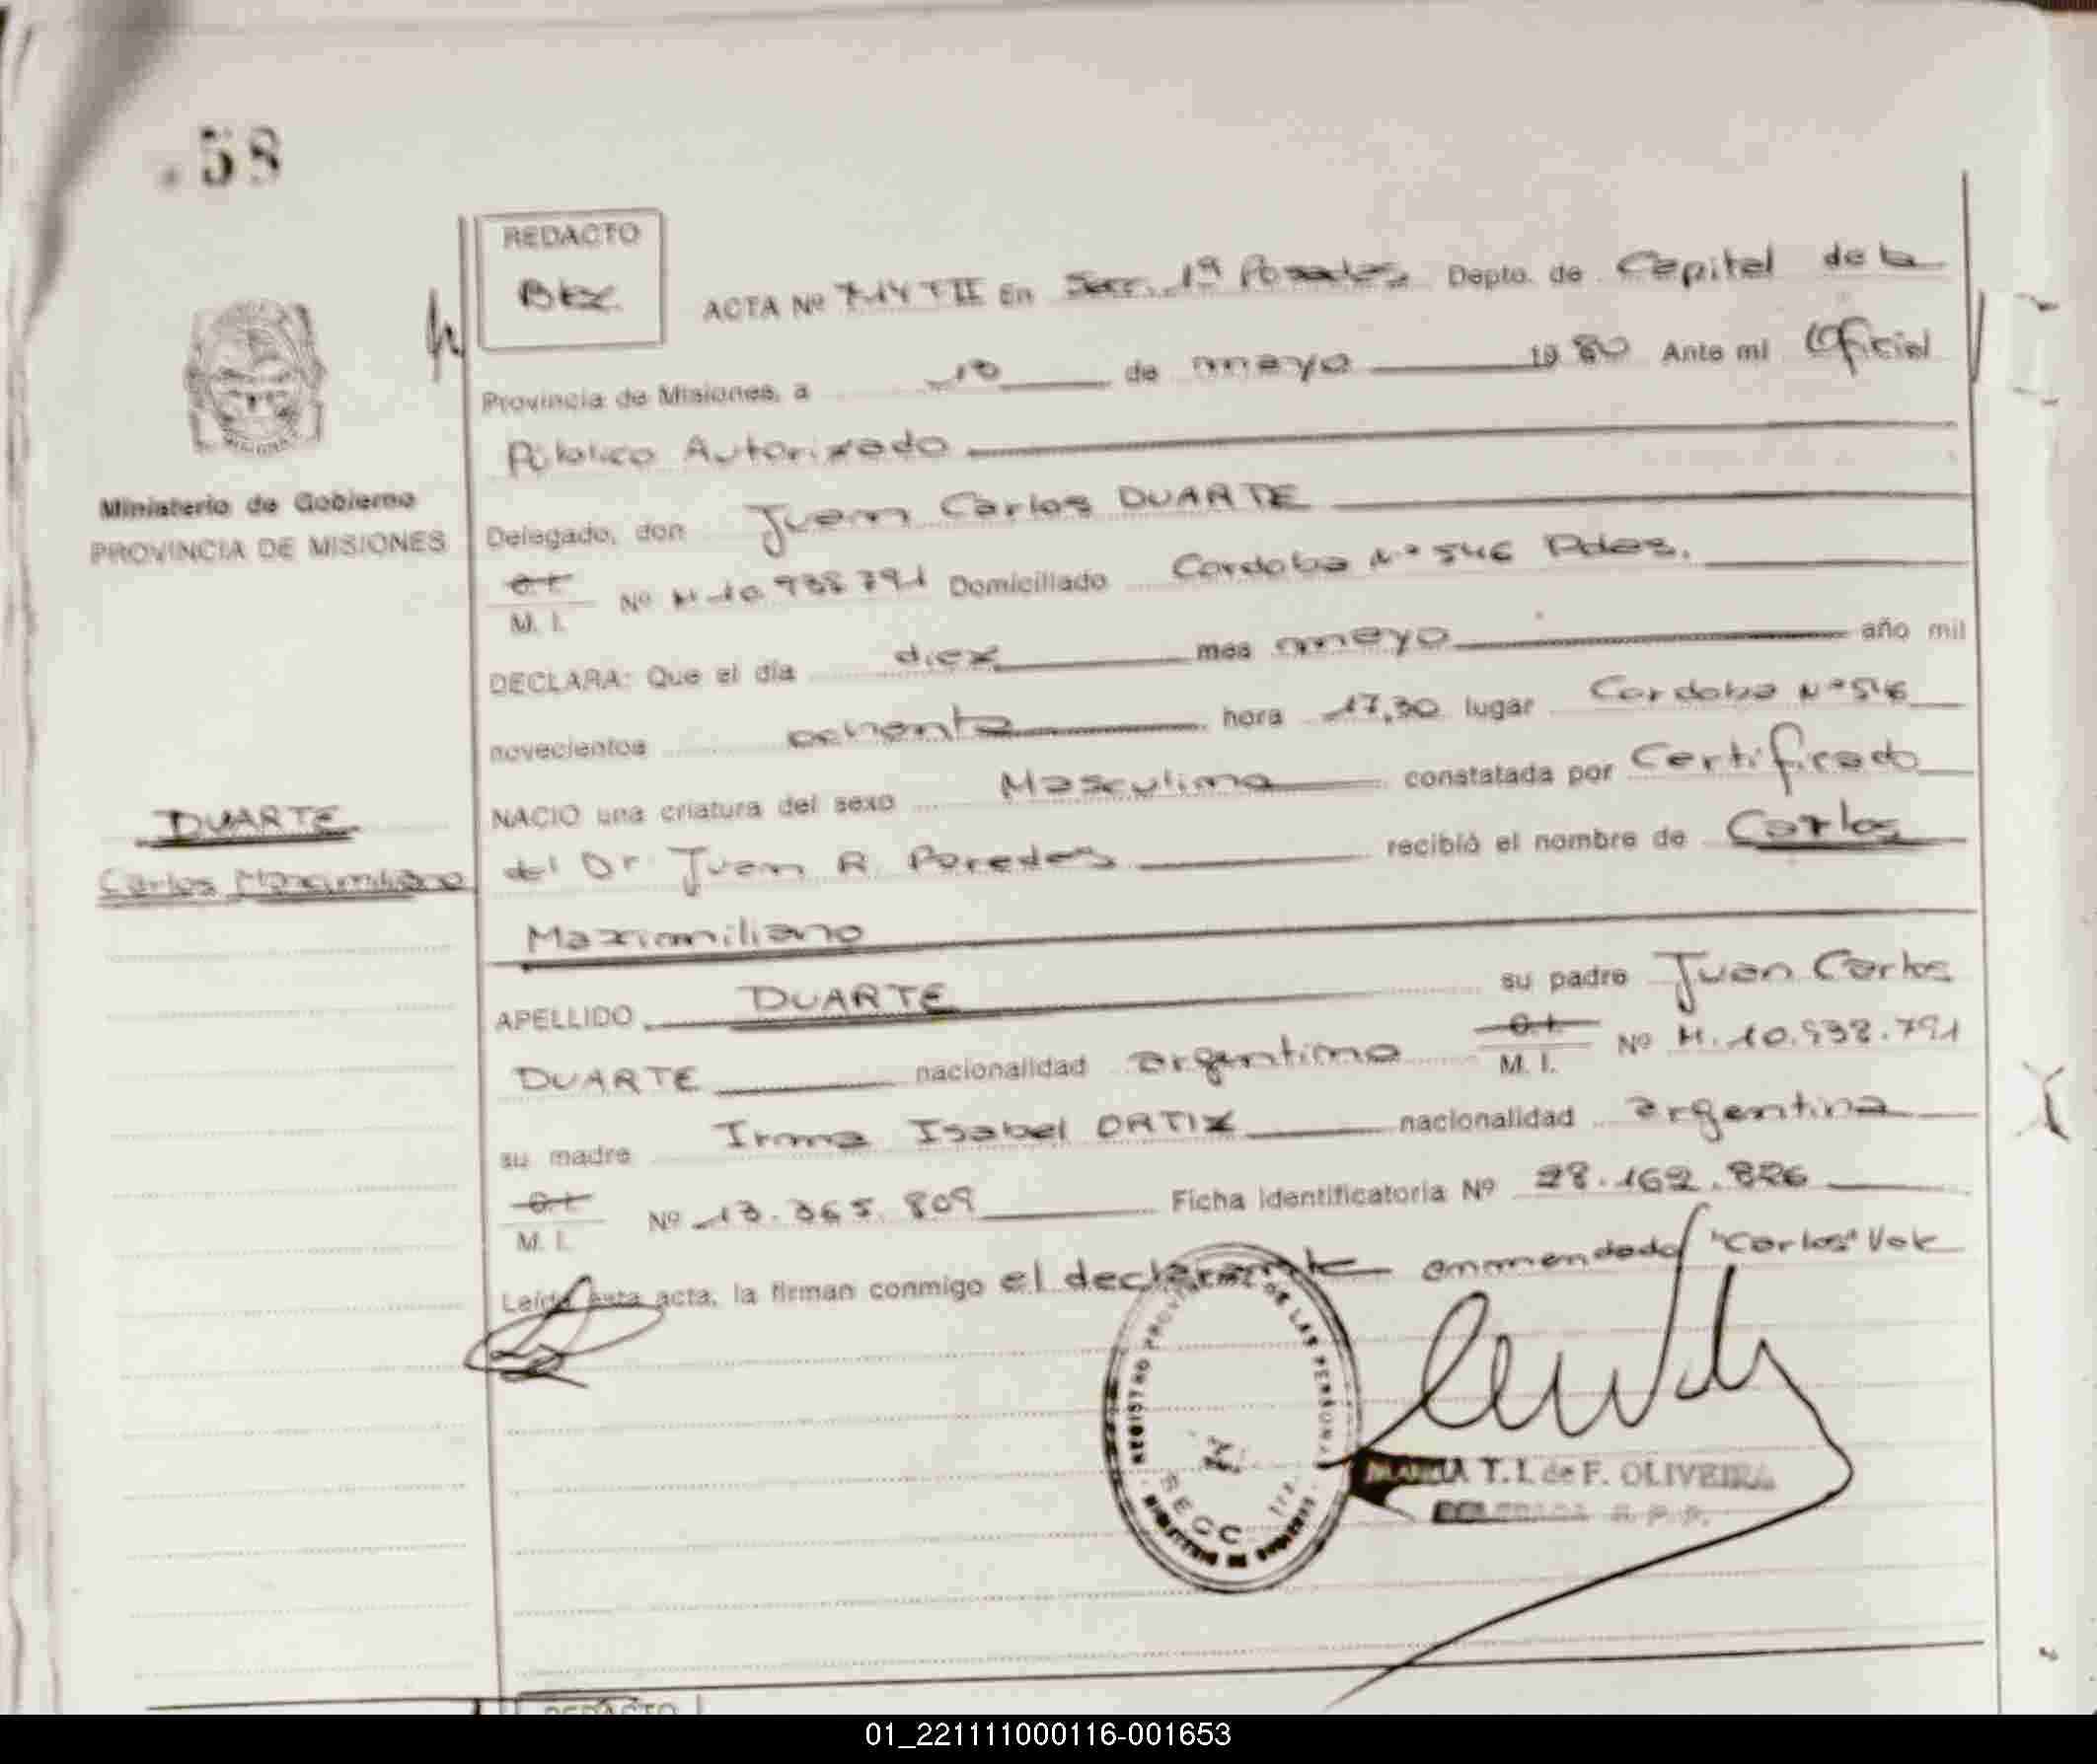 58
REDACTO
ACTA Nº 714 TII En Secc. 1ª Posadas Depto. de Capital de la
Provincia de Misiones, a 10 de mayo 1980 Ante mi Oficial
Público Autorizado
Ministerio de Gobierno
PROVINCIA DE MISIONES
Delegado, don Juan Carlos DUARTE
C.I.
M. I. Nº M. 10.938.791 Domiciliado Cordoba Nº 546 Pdas.
DECLARA: Que el día diez mes mayo año mil
novecientos ochenta hora 17,30 lugar Cordoba Nº 546
NACIO una criatura del sexo Masculino constatada por Certificado
DUARTE
Carlos Maximiliano
del Dr. Juan R. Paredes recibió el nombre de Carlos
Maximiliano
APELLIDO DUARTE su padre Juan Carlos
DUARTE nacionalidad argentino C.I.
M. I. Nº M. 10.938.791
su madre Irma Isabel ORTIZ nacionalidad argentina
C.I.
M. I. Nº 13.365.809 Ficha Identificatoria Nº 28.162.826
Leída esta acta, la firman conmigo el declarante enmendado "Carlos" Vale
REGISTRO PROVINCIAL DE LAS PERSONAS
SECC. 1ra.
MARIA T. I. de F. OLIVEIRA
DELEGADA R. P. P.
REDACTO
01_221111000116-001653